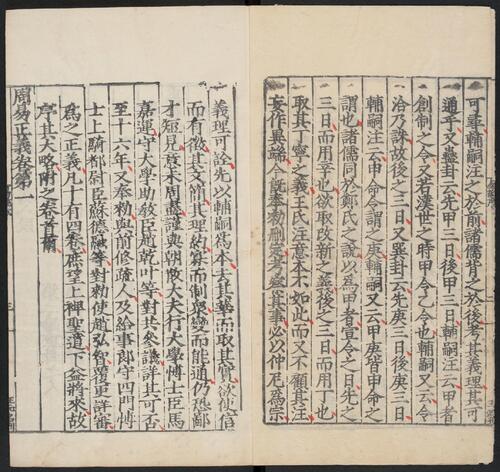 可尋輔嗣注之於前諸儒背之於後考其義理其可
通乎又蠱卦云先甲三日後甲三日輔嗣注云甲者
創制之令又若漢世之時甲令乙令也輔嗣又云令
洽乃誅故後之三日又巽卦云先庚三日後庚三日
輔嗣注云申命令謂之庚輔嗣又云甲庚皆申命之
謂也諸儒同於鄭氏之說以爲甲者宣令之日先之
三日而用辛也欲取改新之義後之三日而用丁也
取其丁寧之義王氏注意本不如此而又不顧其注
妄作異端今旣奉勑刪定考察其事必以仲尼爲宗
義理可詮先以輔嗣爲本去其華而取其實欲使信
而有徵其文簡其理約寡而制衆變而能通仍恐鄙
才短見意未周盡謹與朝散大夫行大學博士臣馬
嘉運守大學助敎臣趙乾叶等對共參議詳其可否
至十六年又奉勑與前修疏人及給事郎守四門博
士上騎都尉臣蘇德融等對勑使趙弘智覆更詳審
爲之正義凡十有四卷庶望上裨聖道下益將來故
序其大略附之卷首爾
周易正義卷第一